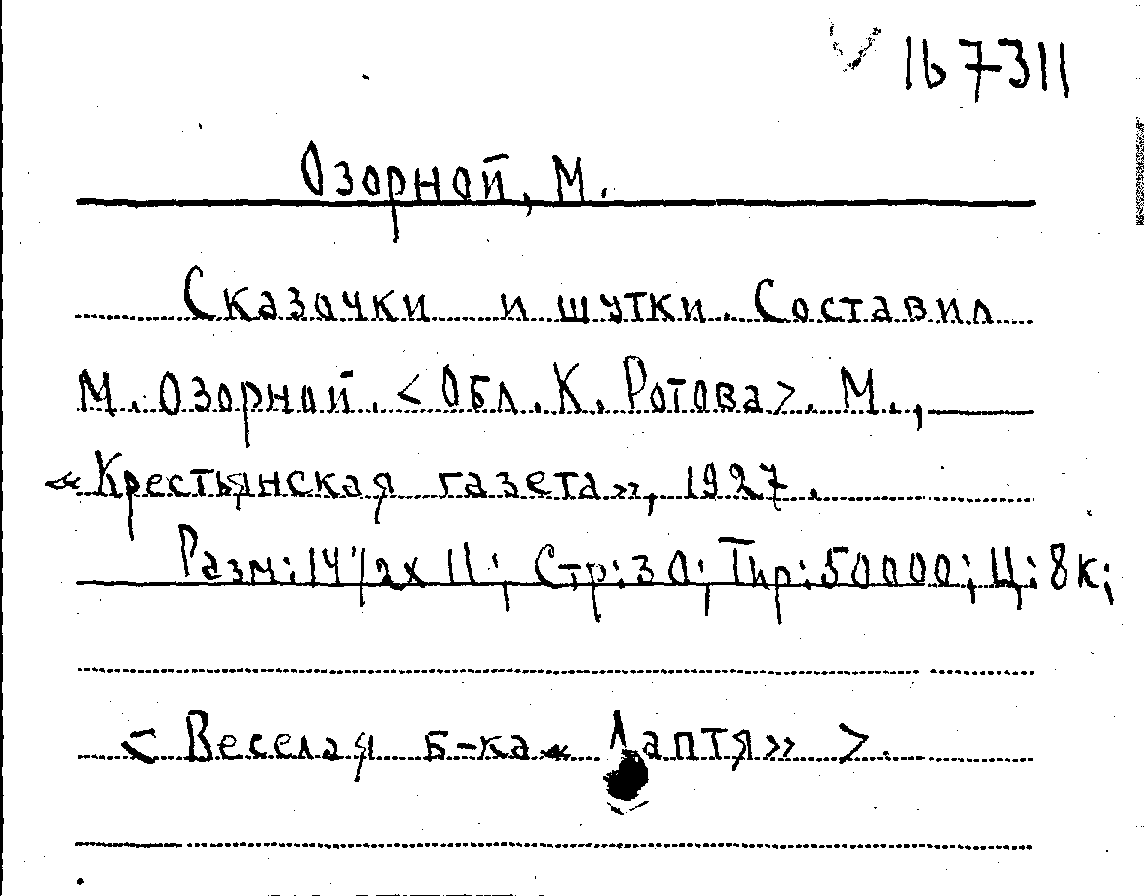 167311
Озорной, М.
Сказочки и шутки. Составил
М. Озорной. <Обл. К. Ротова>. М.,
«Крестьянская газета», 1927.
Разм: 14 1/2 х 11; Стр: 30; Тир: 50000; Ц: 8к;
<Веселая б-ка «Лаптя»>.